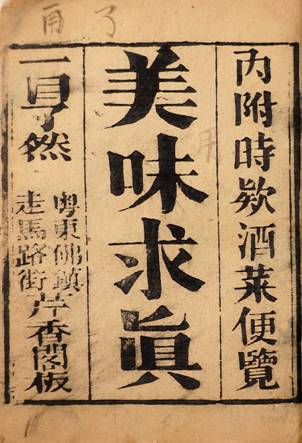 內附時欵酒菜便覽
美味求眞
一目了然
粵東佛鎮
走馬路街
芹香閣板